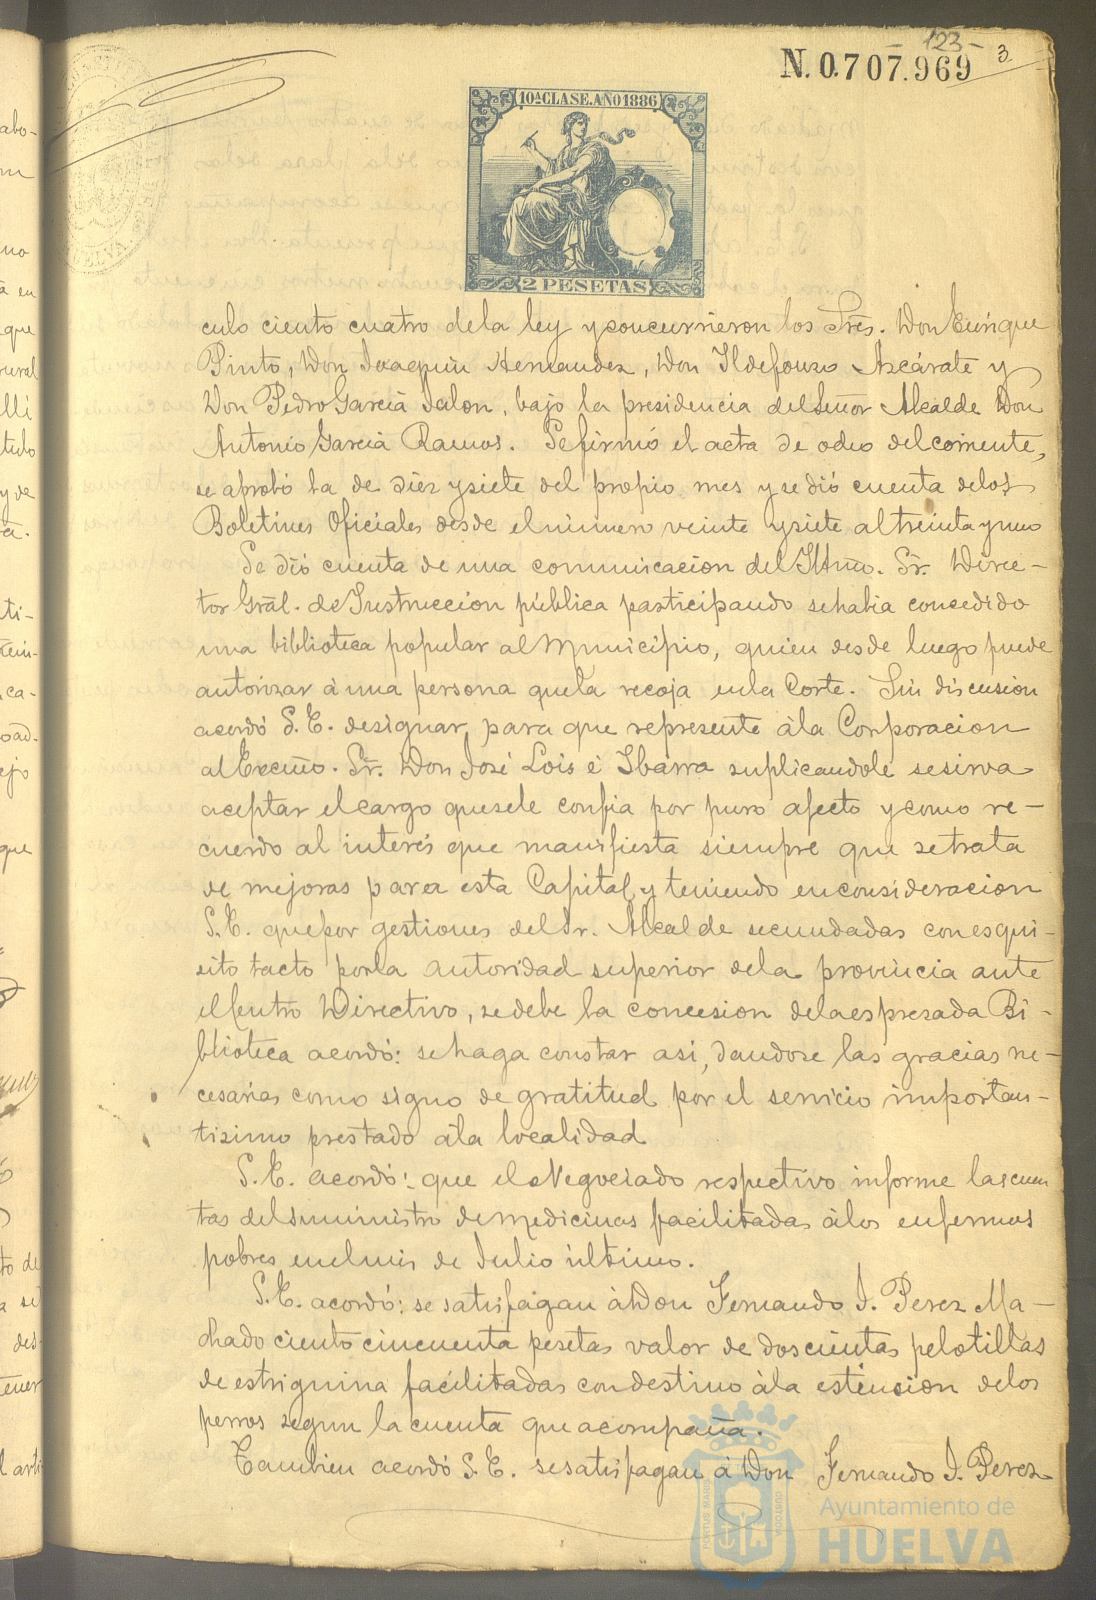 123
N. 0.707.969
3
10ª CLASE. AÑO 1886
2 PESETAS
HUELVA
culo ciento cuatro de la ley y concurrieron los Sres. Don Eunrique
Pinto, Don Joaquin Hernandez, Don Ildefonso Azcárate y
Don Pedro Garcia Jalon, bajo la presidencia del Señor Alcalde Don
Antonio Garcia Ramos. Se firmó el acta de ocho del corriente,
se aprobó la de diez y siete del propio mes y se dió cuenta de los
Boletines Oficiales desde el número veinte y siete al treinta y uno
Se dió cuenta de una comunicacion del Iltmo. Sr. Direc-
tor Gral. de Instruccion pública participando se habia concedido
una biblioteca popular al Municipio, quien desde luego puede
autorizar á una persona que la recoja en la Corte. Sin discusion
acordó S.E. designar para que represente á la Corporacion
al Excmo. Sr. Don José Lois é Ibarra suplicandole se sirva
aceptar el cargo que se le confia por puro afecto y como re-
cuerdo al interés que manifiesta siempre que se trata
de mejoras para esta Capital y teniendo en consideracion
S.E. que por gestiones del Sr. Alcalde secundadas con esqui-
sito tacto por la autoridad superior de la provincia ante
el Centro Directivo, se debe la concesion de la espresada Bi-
blioteca acordó: se haga constar asi, dandose las gracias ne-
cesarias como signo de gratitud por el servicio importan-
tisimo prestado á la localidad
S.E. acordó: que el Negociado respectivo informe las cuen
tas del suministro de medicinas facilitadas á los enfermos
pobres en el mes de Julio último.
S.E. acordó: se satisfagan á Don Fernando J. Perez Ma-
chado ciento cincuenta pesetas valor de doscientas pelotillas
de estriguina facilitadas con destino á la estincion de los
perros segun la cuenta que acompaña.
Tambien acordó S.E. se satisfagan á Don Fernando J. Perez
Ayuntamiento de
HUELVA